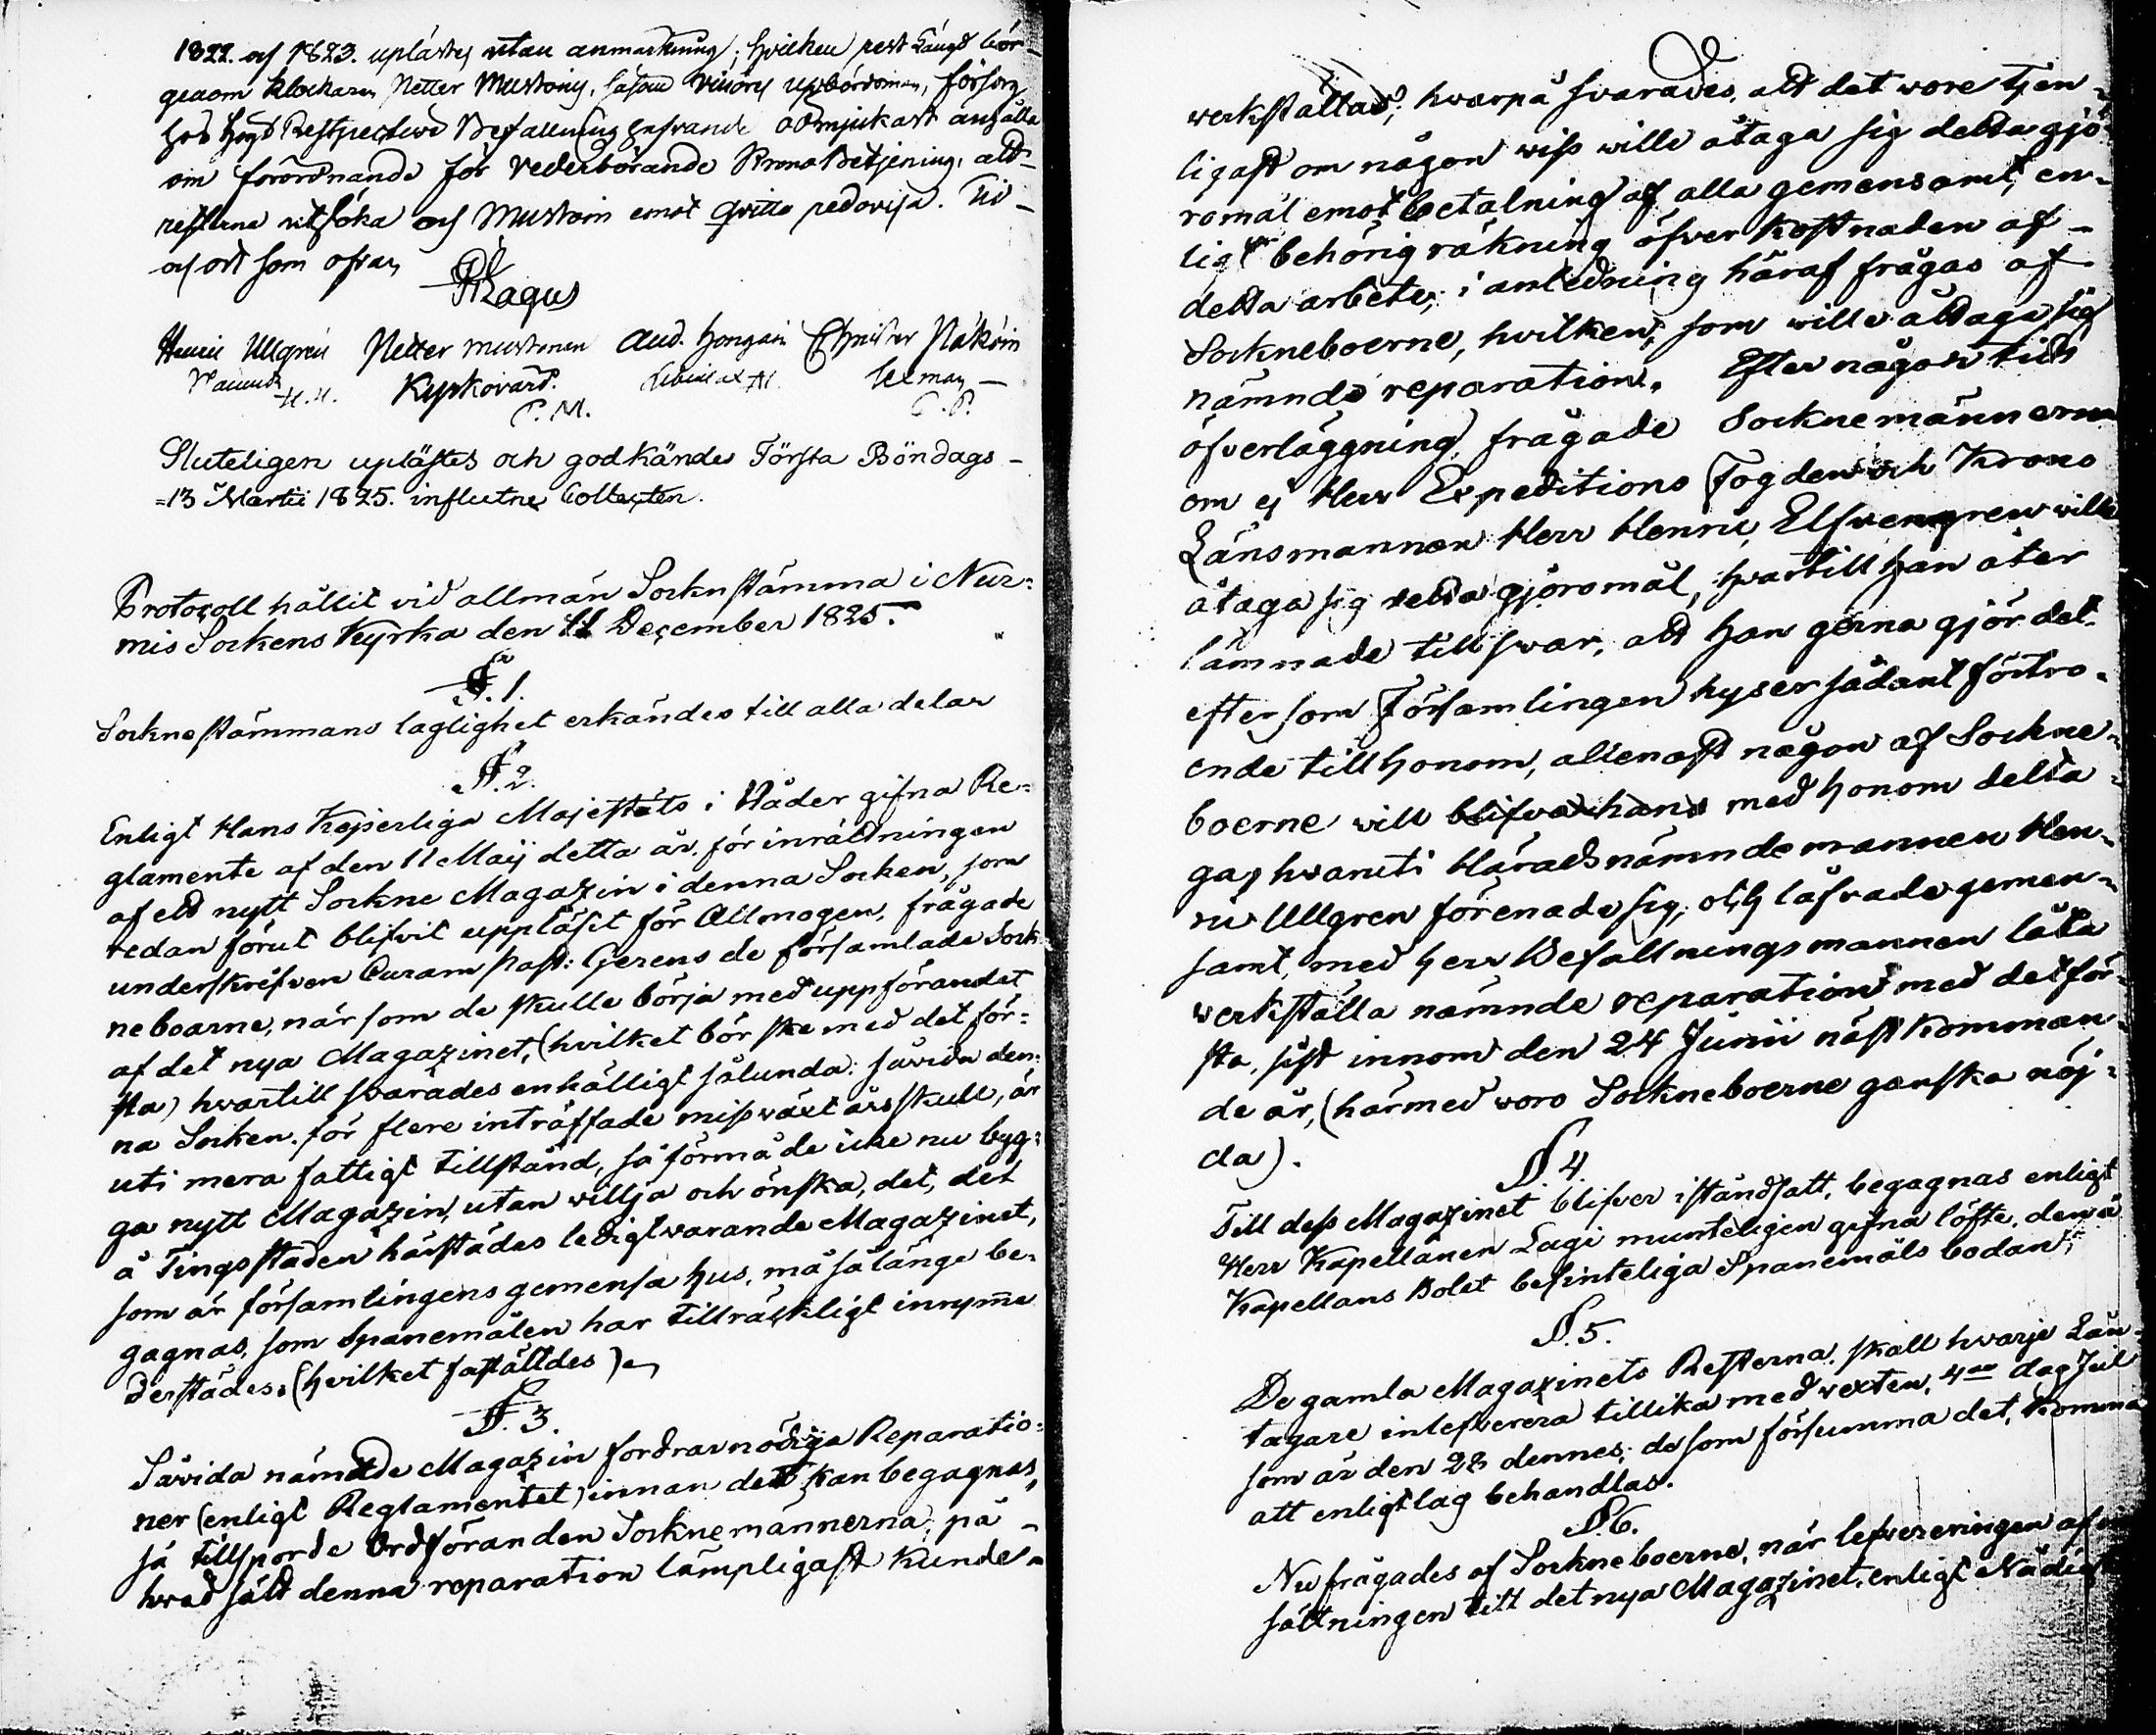 1822. och 1823. uplästes utan anmärkning; hvilken rest Längd bör
genom klockaren Petter Mustonen, såsom upbördsman,
hos Högt Respective Befallningshafvande ödmjukast anhålla
om förordnande för vederbörande Krono Betjening, att
resterna utsöka och Mustoin emot qvitto redovisa. Tid
och ort som ofvan
Ragus
Henric Ullgrén Petter Mustonen And. Christer
H.U. Kyrkovärd. Sexman
P.M.
Sluteligen uplästes och godkändes Första Böndags
=13 Martii 1825. influtne Collecten.
Protocoll hållit vid allmän Socknstämma i Nur=
mis Sockens Kyrka den 11 December 1825.
§. 1.
Socknestämmans laglighet erkändes till alla delar
§. 2.
Enligt Hans Kejserliga Majestäts i Nåder gifna Re=
glamente af den 11 Maij detta år, för inrättningen
af ett nytt Sockne Magazin i denna Socken, som
redan förut blifvit uppläsit för Allmogen, frågade
underskrifven Curam past: Gerens de församlade Sock=
neboarne, när som de skulle börja med uppförandet
af det nya Magazinet, (hvilket bör ske med det för=
sta) hvartill svarades enhälligt sålunda: såvida den=
na Socken för flere inträffade missväxt års skull, är
uti mera fattigt tillstånd, så förmå de icke nu byg=
ga nytt Magazin, utan willja och önska, det, det
å Tingsstaden härstädes ledigt warande Magazinet,
som är församlingens gemensa hus, må sålänge be=
gagnas, som Spanemålen har tillräckligt inrymme
derstädes. (hvilket faställdes)
§. 3.
Såvida nämnde Magazin fordrar nödiga Reparatio=
ner (enligt Reglamentet) innan det kan begagnas,
så tillsporde Ordföranden Socknemännerna, på
hvad sätt denna reparation lämpligast kunde
werkställas; hvarpå svarades, att det wore tjen=
ligast om någon wiss wille åtaga sig detta gjö=
romål emot betalning af alla gemensamt, en=
ligt behörig räkning öfver kostnaden af
detta arbete; i anledning häraf frågas af
Sockneboerne, hvilken, som wille åttaga sig
nämnde reparation. Efter någon tids
öfverläggning, frågade Socknemännerna
om ej Herr Expeditions Fogden och Krono
Länsmannen Herr Henric Elfvengren wille
åtaga sig detta gjöromål, hvartill han åter
lämnade till svar, att han gerna gjör det
eftersom Församlingen hyser sådant förtro=
ende till honom, allenast någon af Sockne=
boerne will med honom delta=
ga, hvaruti Häradsnämndemannen Hen=
ric Ullgren förenade sig, och låfvade gemen=
samt, med Herr Befallningsmannen låta
werkställa nämnde reparation med det för=
sta, sist innom den 24 Junii nästkomman=
de år, (härmed woro Sockneboerne ganska nöj=
da).
§. 4.
Till dess Magazinet blifver iståndsatt, begagnas enligt
Herr Kapellanen Lagi munteligen gifna löfte, den å
Kapellans Bolet befinteliga Spanemåls bodan;
§. 5.
De gamla Magazinets Resterna, skall hwarje Lån=
tagare inlefverera tillika med wexten, 4de dag Jul
som är den 28 dennes; de som försumma det, komma
att enligt lag behandlas.
§. 6.
Nu frågades af Sockneboerne, när lefvereringen af
sättningen till det nya Magazinet, enligt Nådigt